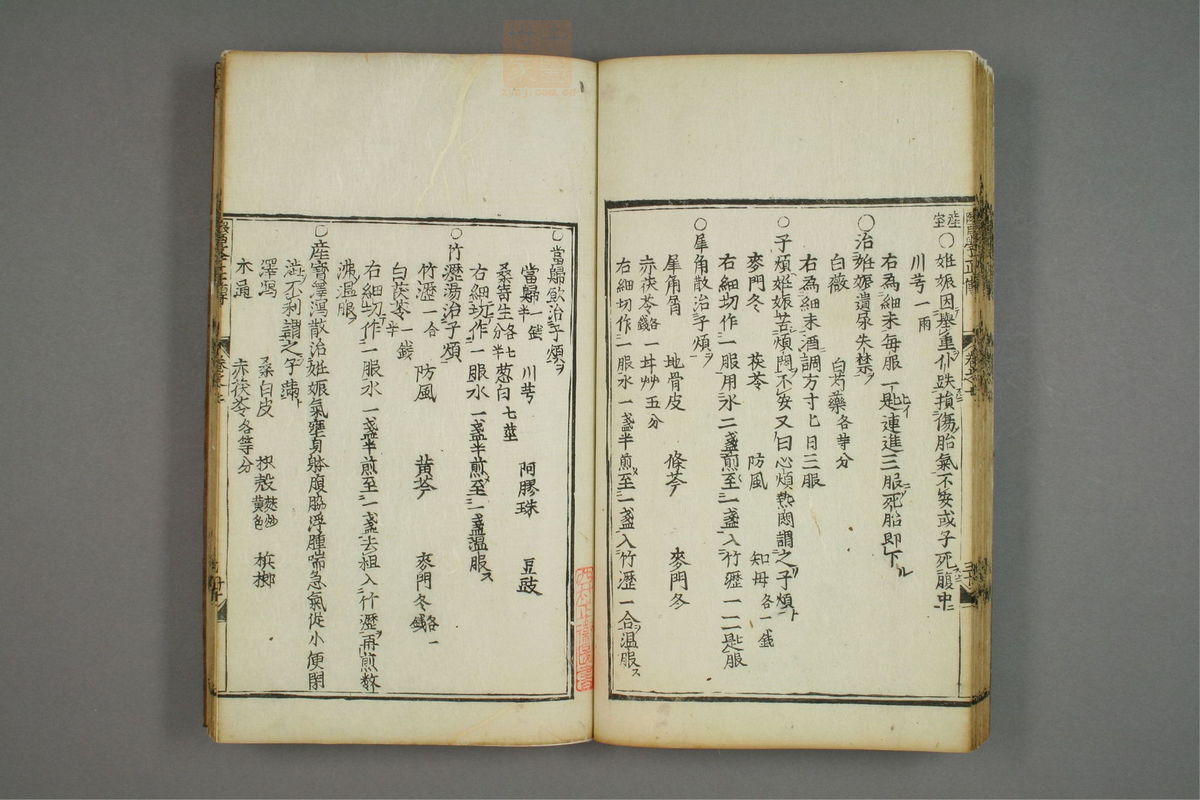 産室
○姙娠因擧重仆跌損傷胎氣不安或子死腹中
川芎一兩
右為細末毎服一匙連進三服死胎即下ル
○治姙娠遺尿失禁ヲ
白薇 白芍藥各等分
右為細末酒調方寸匕日三服
○子煩姙娠苦煩悶不安又曰心煩熱悶謂之子煩ト
麥門冬 茯苓 防風 知母各一錢
右細切作一服用水二盞煎至一盞入竹瀝一二匙服
○犀角散治子煩ヲ
犀角屑 地骨皮 條芩 麥門冬
赤茯苓各一錢 甘艸五分
右細切作一服水一盞半煎至一盞入竹瀝一合温服ス
○當歸飲治子煩ヲ
當歸一錢半 川芎 阿膠珠 豆豉
桑寄生各七分半 葱白七莖
右細切作一服水一盞半煎至一盞温服ス
○竹瀝湯治子煩
竹瀝一合 防風 黄芩 麥門冬各一錢
白茯苓一錢半
右細切作一服水一盞半煎至一盞去柤入竹瀝再煎数
沸温服ヲ
○産寳澤瀉散治姙娠氣壅身躰腹脇浮腫喘急氣促小便閉
澁不利謂之子滿ト
澤瀉 桑白皮 枳殻麩炒黄色 梹榔
木通 赤茯苓各等分